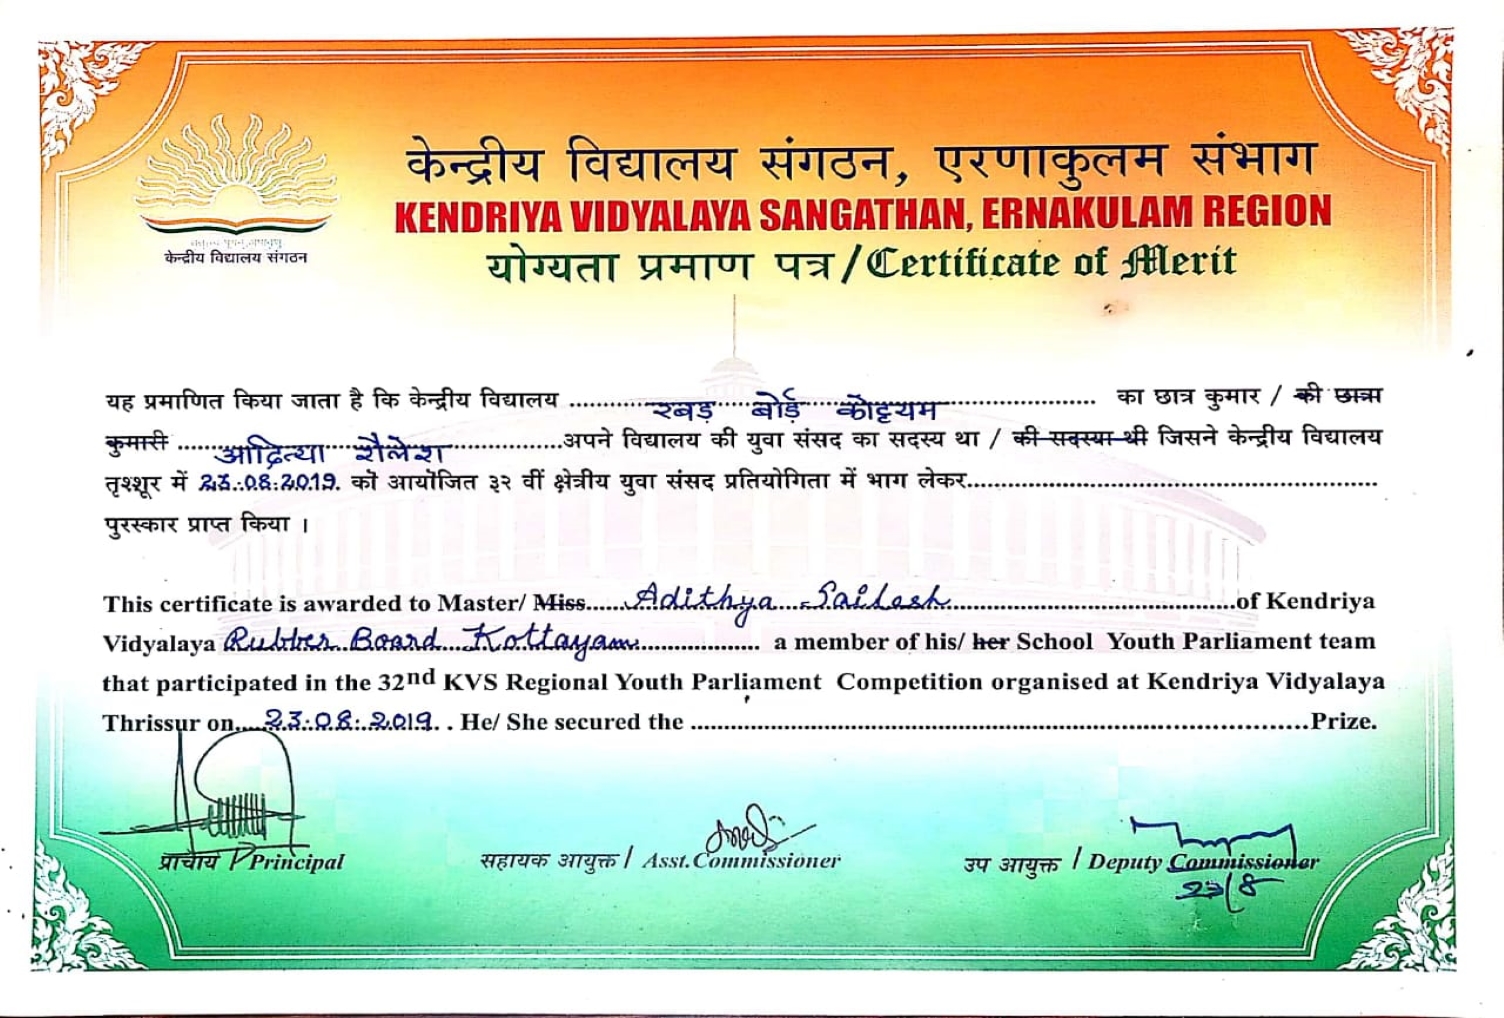 केन्द्रीय विद्यालय संगठन, एरणाकुलम संभाग
KENDRIYA VIDYALAYA SANGATHAN, ERNAKULAM REGION
योग्यता प्रमाण पत्र/Certificate of Merit
केन्द्रीय विद्यालय संगठन
यह प्रमाणित किया जाता है कि केन्द्रीय विद्यालय रबड़ बोर्ड कोट्टयम का छात्र कुमार / की छात्रा
कुमारी आदित्या शैलेश अपने विद्यालय की युवा संसद का सदस्य था / की सदस्या थी जिसने केन्द्रीय विद्यालय
तृश्शूर में 23.08.2019. को आयोजित ३२ वीं क्षेत्रीय युवा संसद प्रतियोगिता में भाग लेकर
पुरस्कार प्राप्त किया ।
This certificate is awarded to Master/ Miss Adithya Sailesh of Kendriya
Vidyalaya Rubber Board Kottayam a member of his/ her School Youth Parliament team
that participated in the 32nd KVS Regional Youth Parliament Competition organised at Kendriya Vidyalaya
Thrissur on 23.08.2019. He/ She secured the Prize.
प्राचार्य / Principal
सहायक आयुक्त / Asst. Commissioner
उप आयुक्त / Deputy Commissioner
23/8